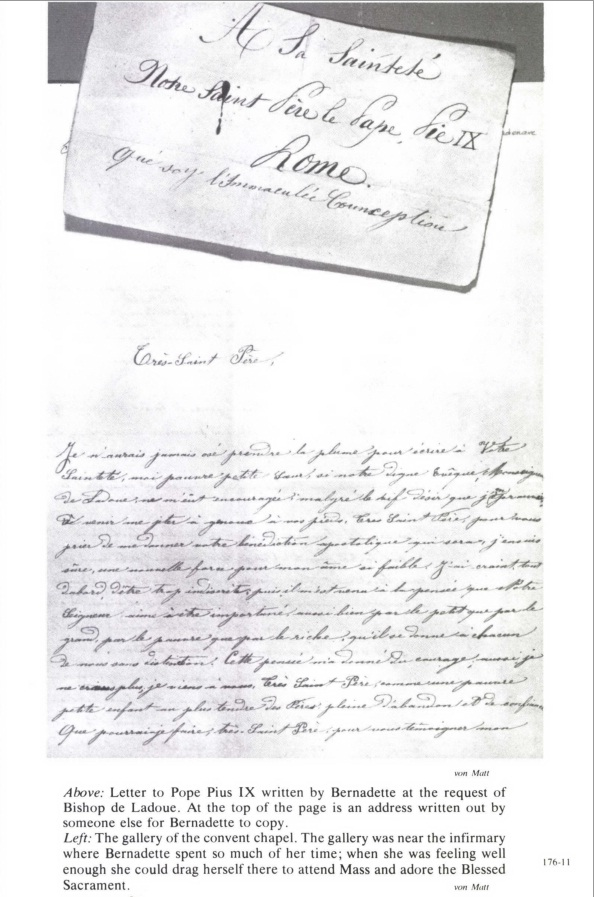 A Sa Sainteté
Notre Saint Père le Pape, Pie IX
Rome.
que soy l'Immaculée Counception
Très-Saint Père,
Je n'aurais jamais osé prendre la plume pour écrire à Votre
Sainteté, moi pauvre petite Sœur, si notre digne Evêque, Monseign
de Ladoue, ne m'eût encouragée : malgré le vif désir que j'éprouvais
de venir me jeter à genoux à vos pieds, Très Saint Père, pour vous
prier de me donner votre bénédiction apostolique qui sera, j'en suis
sûre, une nouvelle force pour mon âme si faible. J'ai craint tout
d'abord, d'être trop indiscrète, puis il m'est venu à la pensée que Notre
Seigneur aime à être importuné, aussi bien par le petit que par le
grand, par le pauvre que par le riche, qu'il se donne à chacun
de nous sans distention. Cette pensée m'a donné du courage, aussi je
ne crains plus, je viens à vous, Très Saint Père, comme une pauvre
petite enfant au plus tendre des Pères, pleine d'abandon et de confian
Que pourrai-je faire, très Saint Père, pour vous témoigner mon
von Matt
Above: Letter to Pope Pius IX written by Bernadette at the request of
Bishop de Ladoue. At the top of the page is an address written out by
someone else for Bernadette to copy.
Left: The gallery of the convent chapel. The gallery was near the infirmary
where Bernadette spent so much of her time; when she was feeling well
enough she could drag herself there to attend Mass and adore the Blessed
Sacrament.
von Matt
176-11